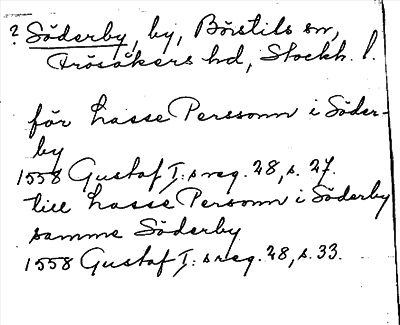 ? Söderby, by, Börstils sn,
Frösåkers hd, Stockh. l.
för Lasse Perssonn i Söder-
by
1558 Gustaf I:s reg. 28, s. 27.
till Lasse Personn i Söderby
samme Söderby
1558 Gustaf I:s reg. 28, s. 33.